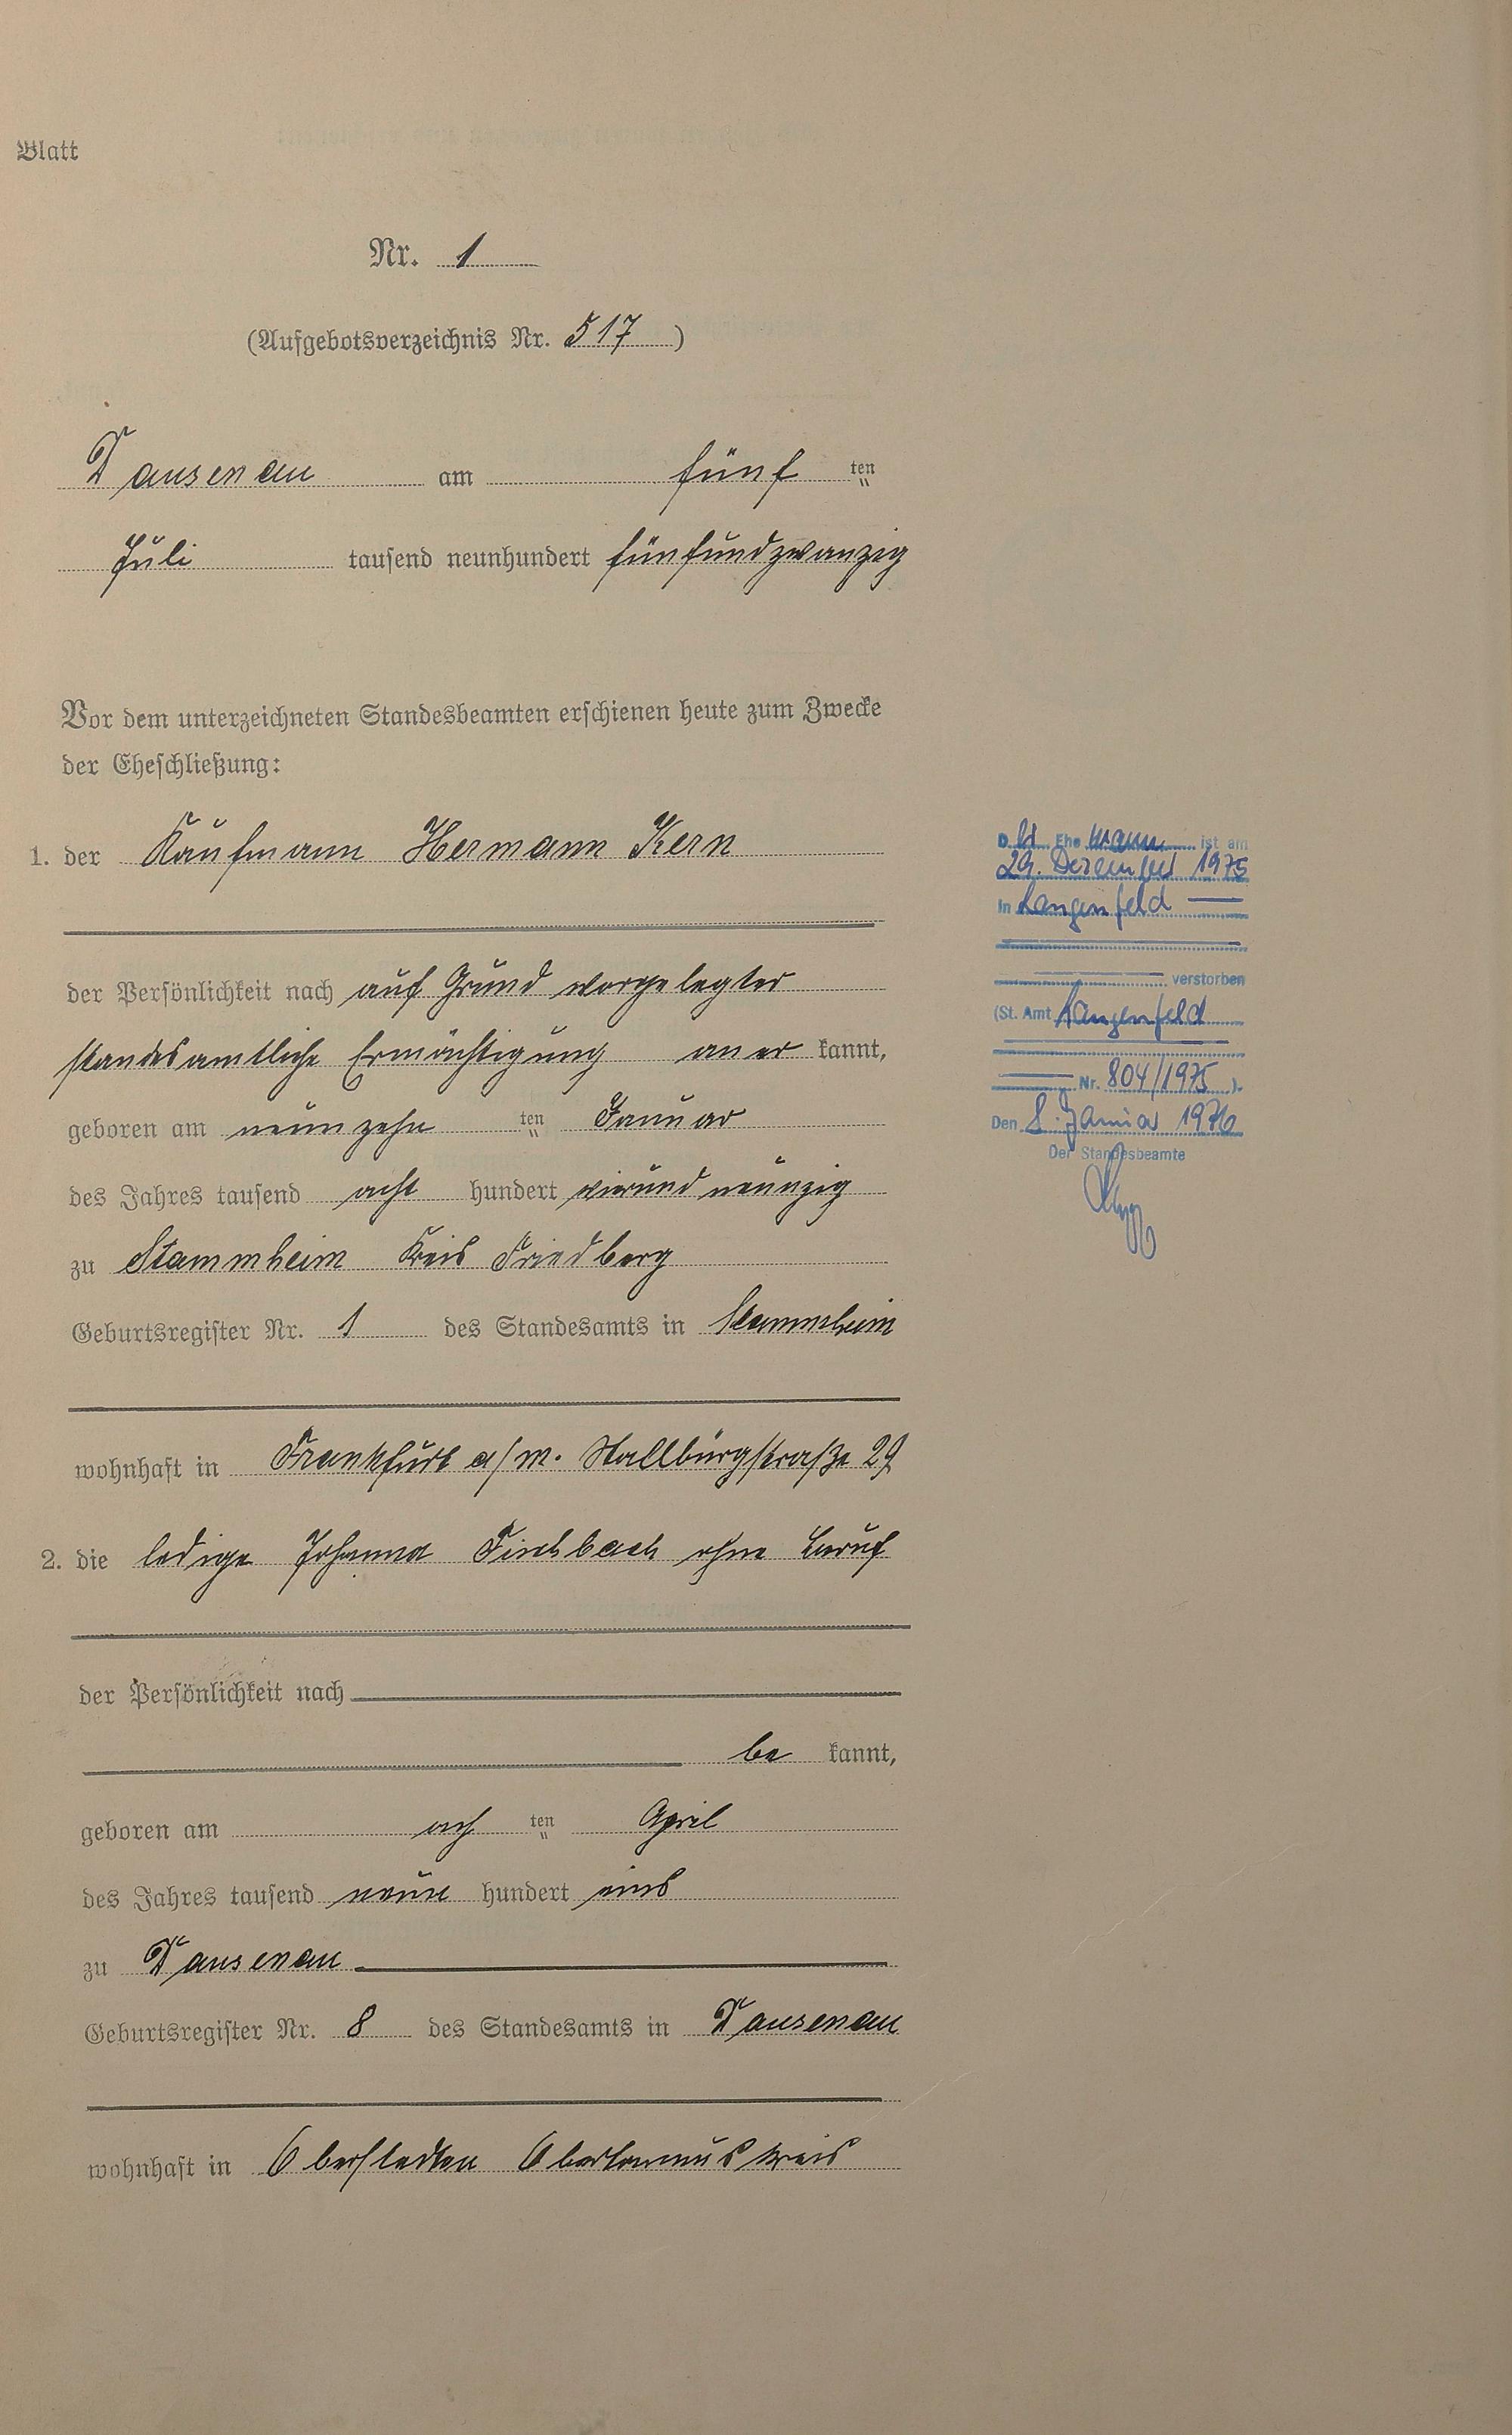 Blatt
Nr. 1
(Aufgebotsverzeichnis Nr. 517)
Dausenau am fünf ten
Juli tausend neunhundert fünfundzwanzig
Vor dem unterzeichneten Standesbeamten erschienen heute zum Zwecke
der Eheschließung:
1. der Kaufmann Hermann Kern
der Persönlichkeit nach auf Grund vorgelegter
standesamtliche Ermächtigung aner kannt,
geboren am neunzehn ten Januar
des Jahres tausend acht hundert vierundneunzig
zu Stammheim Kreis Friedberg
Geburtsregister Nr. 1 des Standesamts in Stammheim
wohnhaft in Frankfurt a/m. Stallburgstraße 29
2. die ledige Johanna Fischbach ohne Beruf
der Persönlichkeit nach
be kannt,
geboren am ach ten April
des Jahres tausend neun hundert eins
zu Dausenau
Geburtsregister Nr. 8 des Standesamts in Dausenau
wohnhaft in Oberstedten Obertaunuskreis
D er Ehe mann ist am
29. Dezember 1975
in Langenfeld
verstorben
(St. Amt Langenfeld
Nr. 804/1975).
Den 8. Januar 1976
Der Standesbeamte